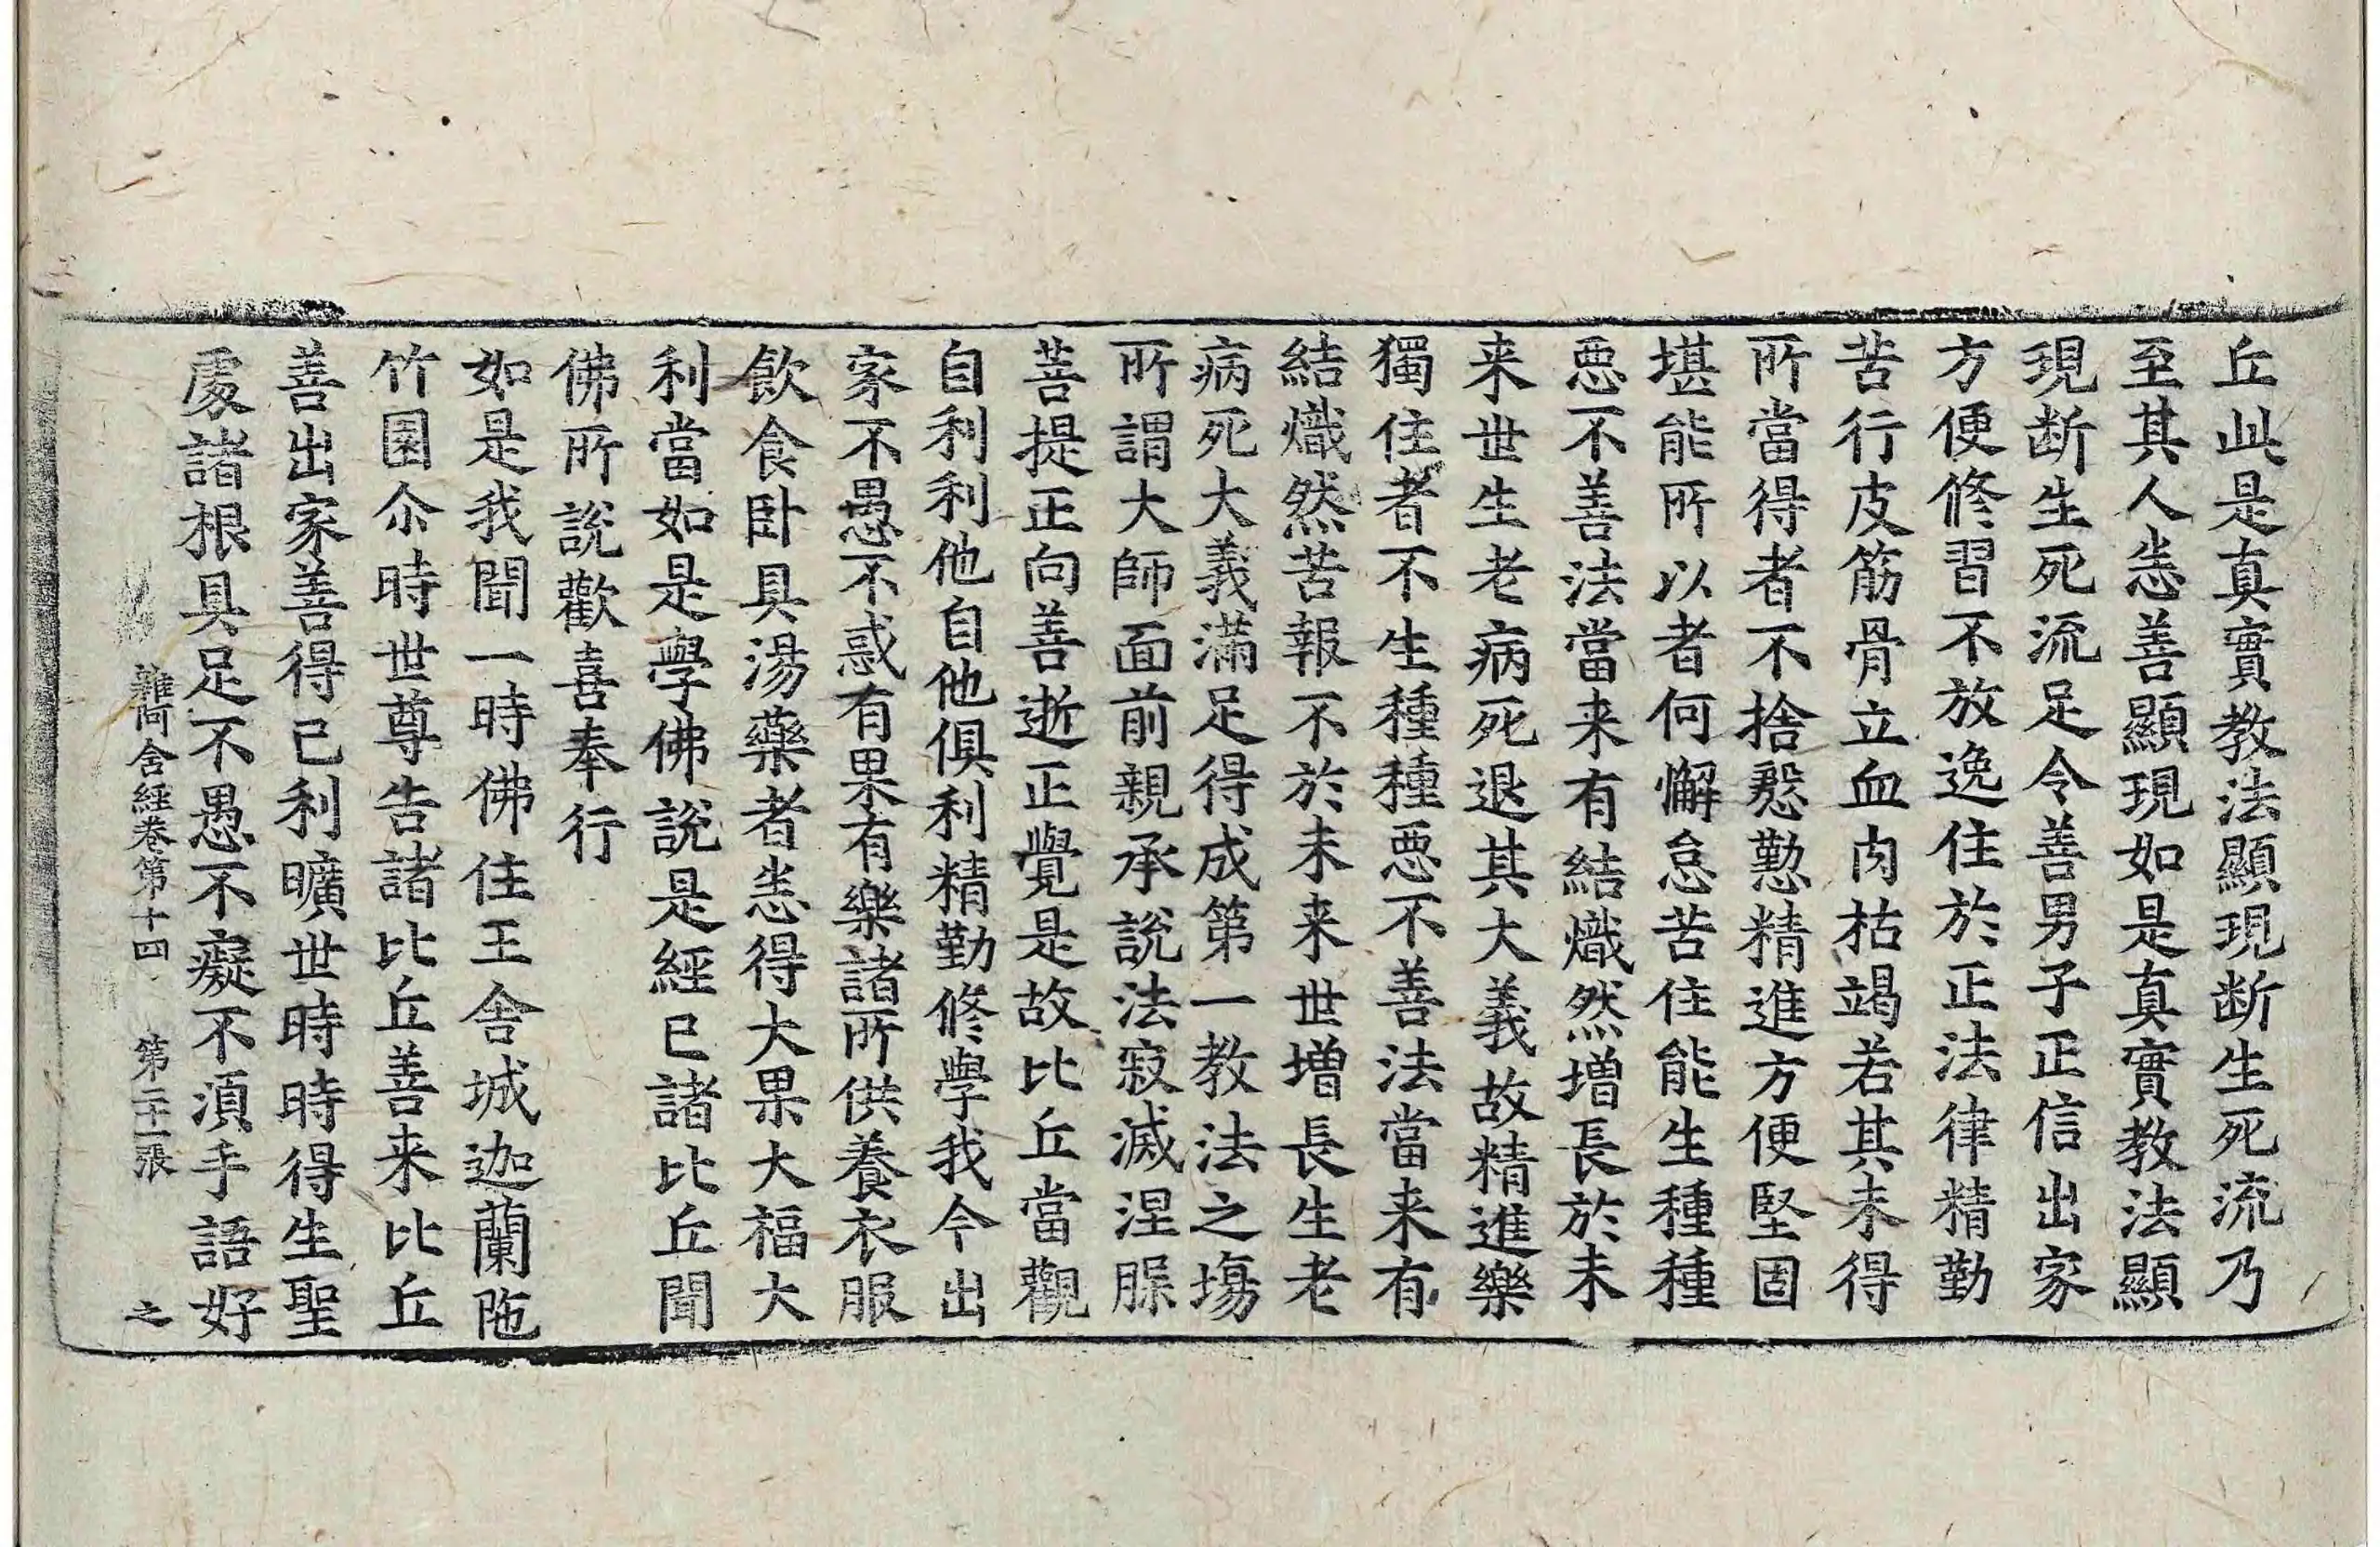 丘此是真實教法顯現断生死流乃
至其人恙善顯現如是真實教法顯
現断生死流足令善男子正信出家
方便修習不放逸住於正法律精勤
苦行皮筋骨立血肉枯竭若其未得
所當得者不捨慇懃精進方便堅固
堪能所以者何懈怠苦住能生種種
悪不善法當来有結熾然增長於未
来世生老病死退其大義故精進樂
獨住者不生種種悪不善法當来有
結熾然苦報不於未来世增長生老
病死大義滿足得成第一教法之塲
所謂大師面前親承說法寂滅涅脲
菩提正向善逝正覺是故比丘當觀
自利利他自他俱利精勤修學我今出
家不愚不惑有果有樂諸所供養衣服
飲食卧具湯藥者恙得大果大福大
利當如是學佛說是經已諸比丘聞
佛所說歡喜奉行
如是我聞一時佛住王舍城迦蘭陁
竹園尒時世尊告諸比丘善来比丘
善出家善得已利曠世時時得生聖
處諸根具足不愚不癡不湏手語好
雜阿含經卷第十四 第二十一張 之